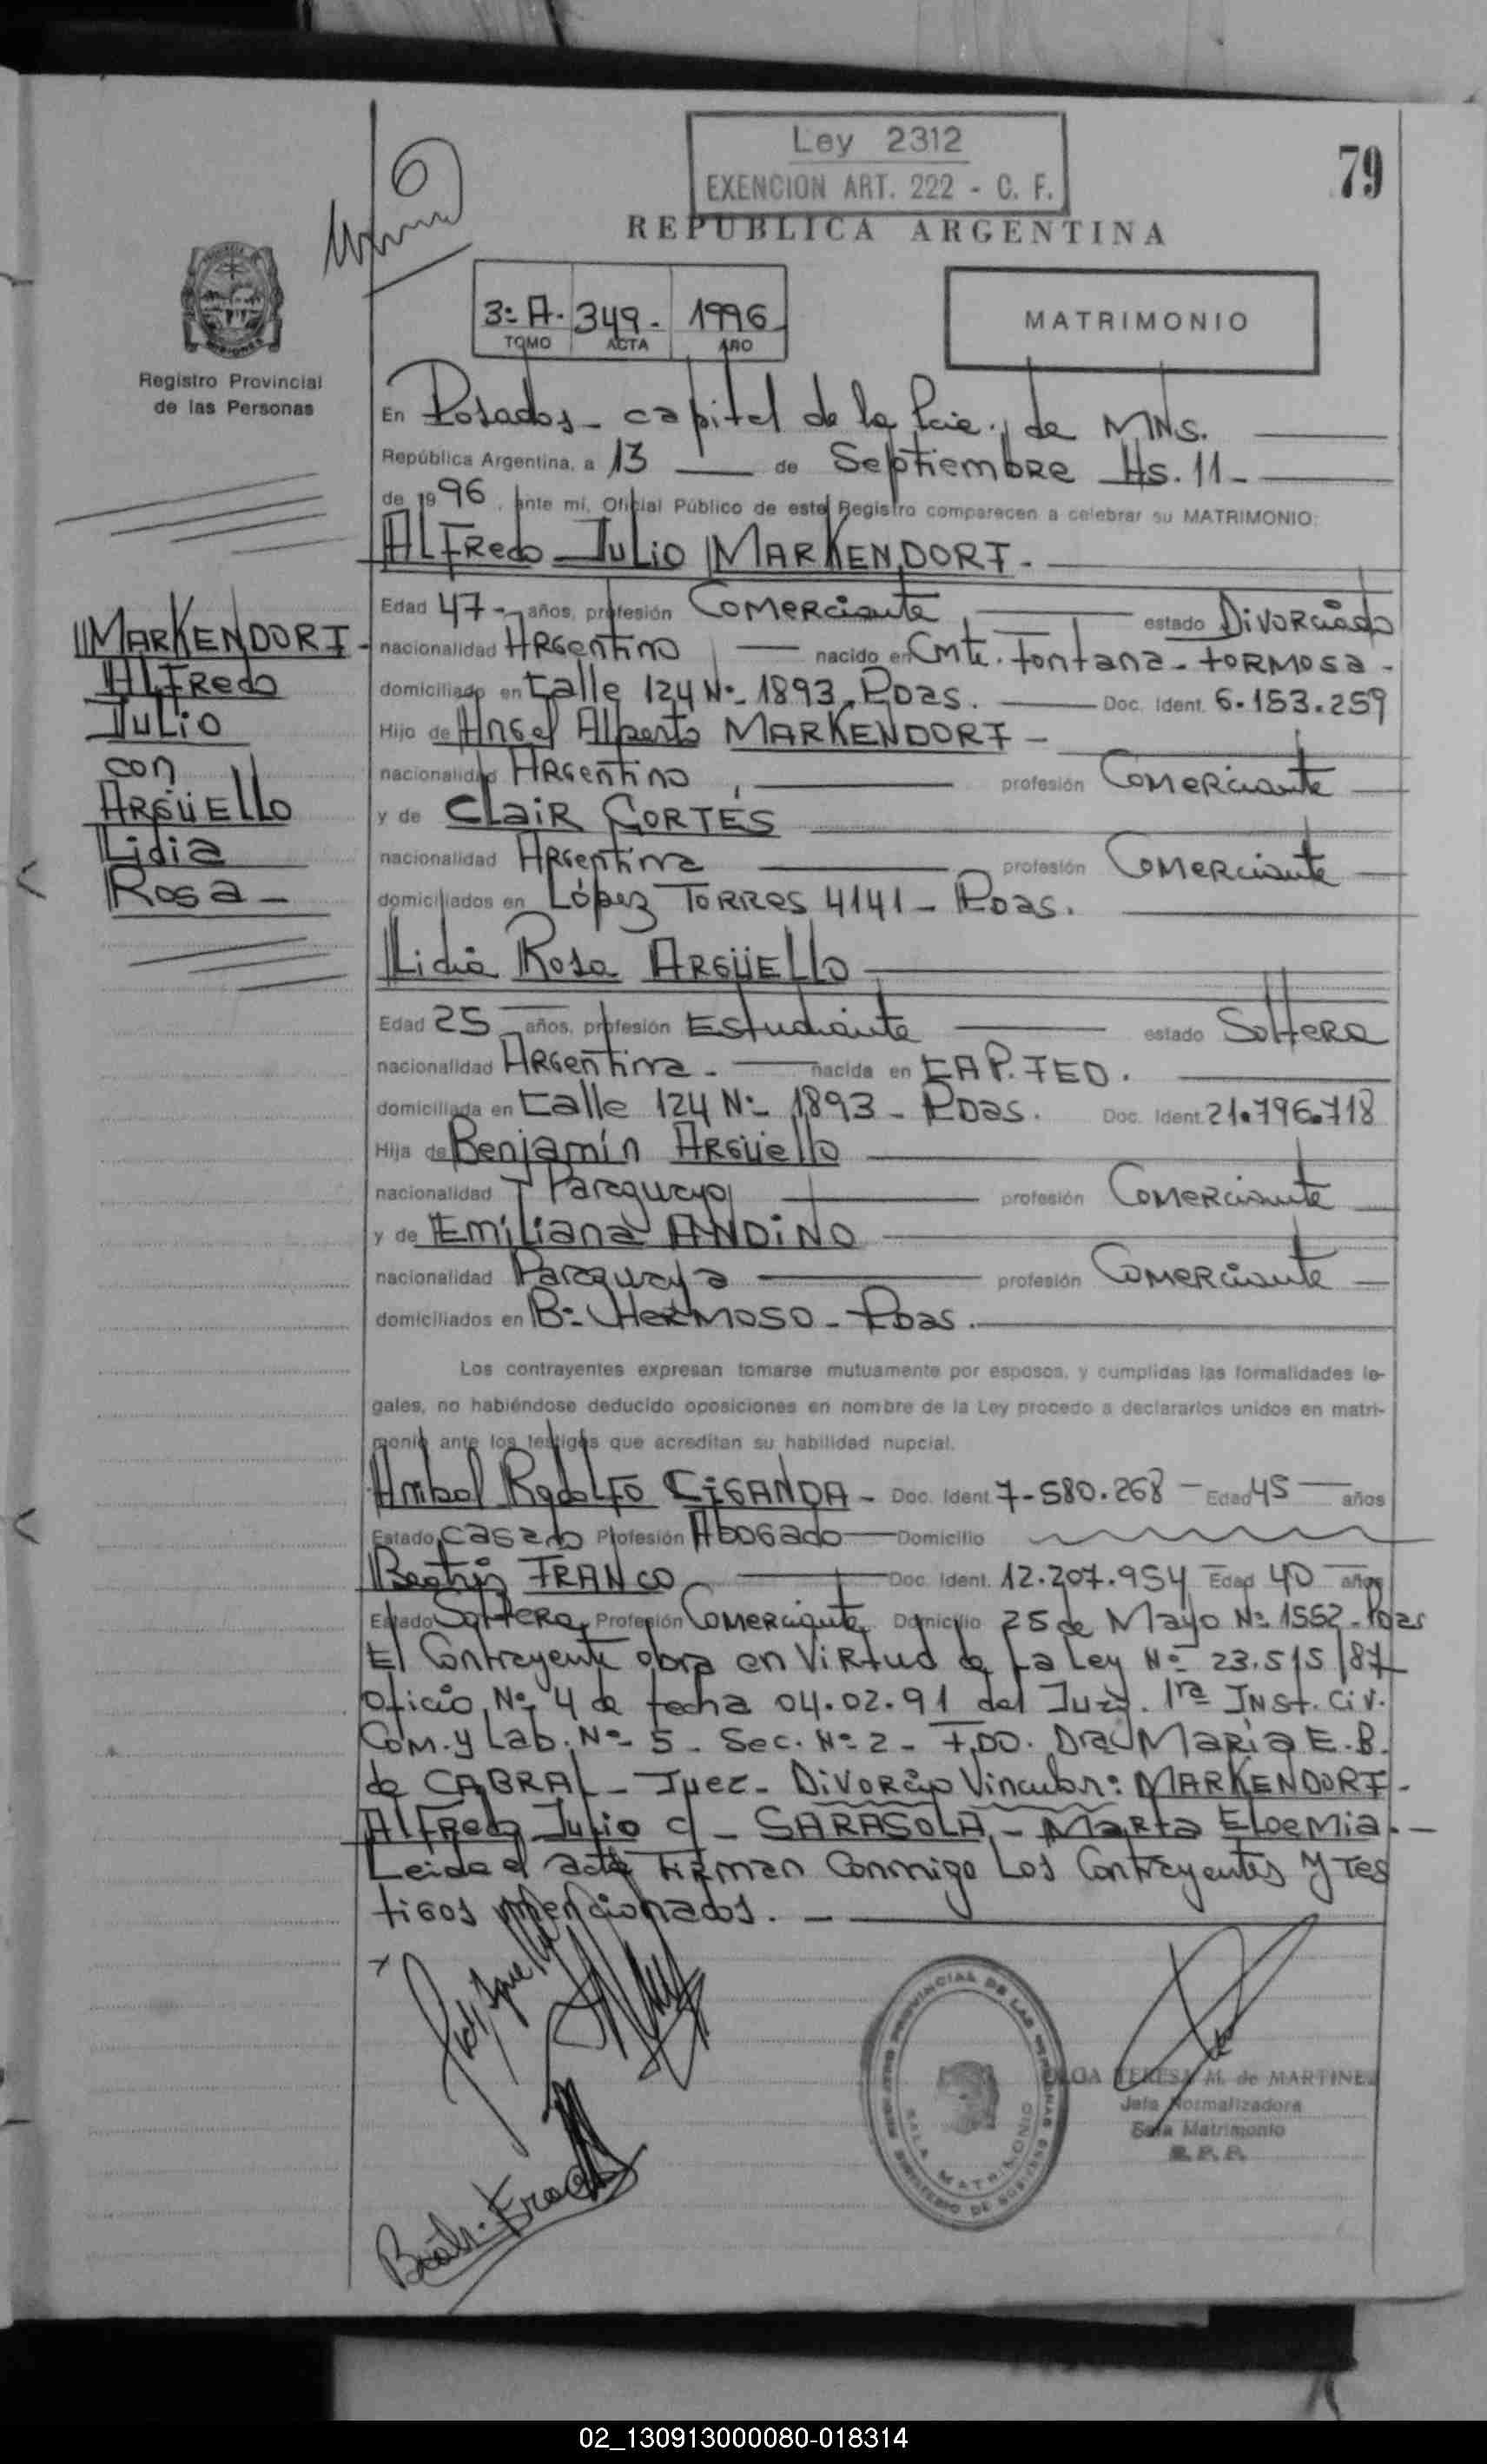 Ley 2312
EXENCION ART. 222 - C. F.
79
REPUBLICA ARGENTINA
3º A. 349. 1996
TOMO ACTA AÑO
MATRIMONIO
Registro Provincial
de las Personas
En Posadas - capital de la Pcia. de MNS.
República Argentina, a 13 de Septiembre Hs. 11 -
de 1996, ante mí, Oficial Público de este Registro comparecen a celebrar su MATRIMONIO:
ALFRedo JULiO MARKENDORF -
Edad 47 - años, profesión Comerciante estado DiVORciado
nacionalidad ARgentino nacido en Cmte. Fontana - FORMOSA -
domiciliado en Calle 124 Nº 1893. Pdas. Doc. Ident. 6.153.259
Hijo de Angel Alberto MARKENDORF -
nacionalidad ARgentino, profesión Comerciante
y de CLaiR CORTÉS
nacionalidad ARgentina profesión Comerciante
domiciliados en López TORRes 4141 - Pdas.
MARKENDORF -
ALFRedo
JULiO
con
ARGÜELLO
Lidia
Rosa -
Lidia Rosa ARGÜELLO
Edad 25 años, profesión Estudiante estado SolteRa
nacionalidad ARgentina. nacida en CAP. FED.
domiciliada en Calle 124 Nº 1893 - Pdas. Doc. Ident. 21.796.718
Hija de Benjamín ARGüello
nacionalidad Paraguayo profesión Comerciante
y de Emiliana ANDiNO
nacionalidad Paraguaya profesión Comerciante
domiciliados en Bº HeRMOSO - Pdas.
Los contrayentes expresan tomarse mutuamente por esposos, y cumplidas las formalidades le-
gales, no habiéndose deducido oposiciones en nombre de la Ley procedo a declararlos unidos en matri-
monio ante los testigos que acreditan su habilidad nupcial.
Anibal RodolFO CiGANDA - Doc. Ident. 7-580.268 - Edad 45 años
Estado casado Profesión Abogado Domicilio
Beatriz FRANCO Doc. Ident. 12.207.954 Edad 40 años
Estado SolteRa Profesión Comerciante Domicilio 25 de Mayo Nº 1562 - Pdas
El Contrayente obra en ViRtud de La Ley Nº 23.515/87
Oficio Nº 4 de fecha 04.02.91 del Juzg. 1ra INSt. Civ.
Com. y Lab. Nº 5 - Sec. Nº 2 - FDO. Dra MaRía E.B.
de CABRAL - Juez - DiVORcio Vincular: MARKENDORF -
ALFRedo Julio c/ - SARASOLA - MaRta ELOeMia. -
Leida el acta FiRman Conmigo Los Contrayentes y Tes
tigos mencionados. -
PROVINCIAL DE LAS
SALA MATRIMONIO
TERESA M. de MARTINEZ
Jefa Normalizadora
Sala Matrimonio
R. P. P.
Beatr. Franco
02_130913000080-018314